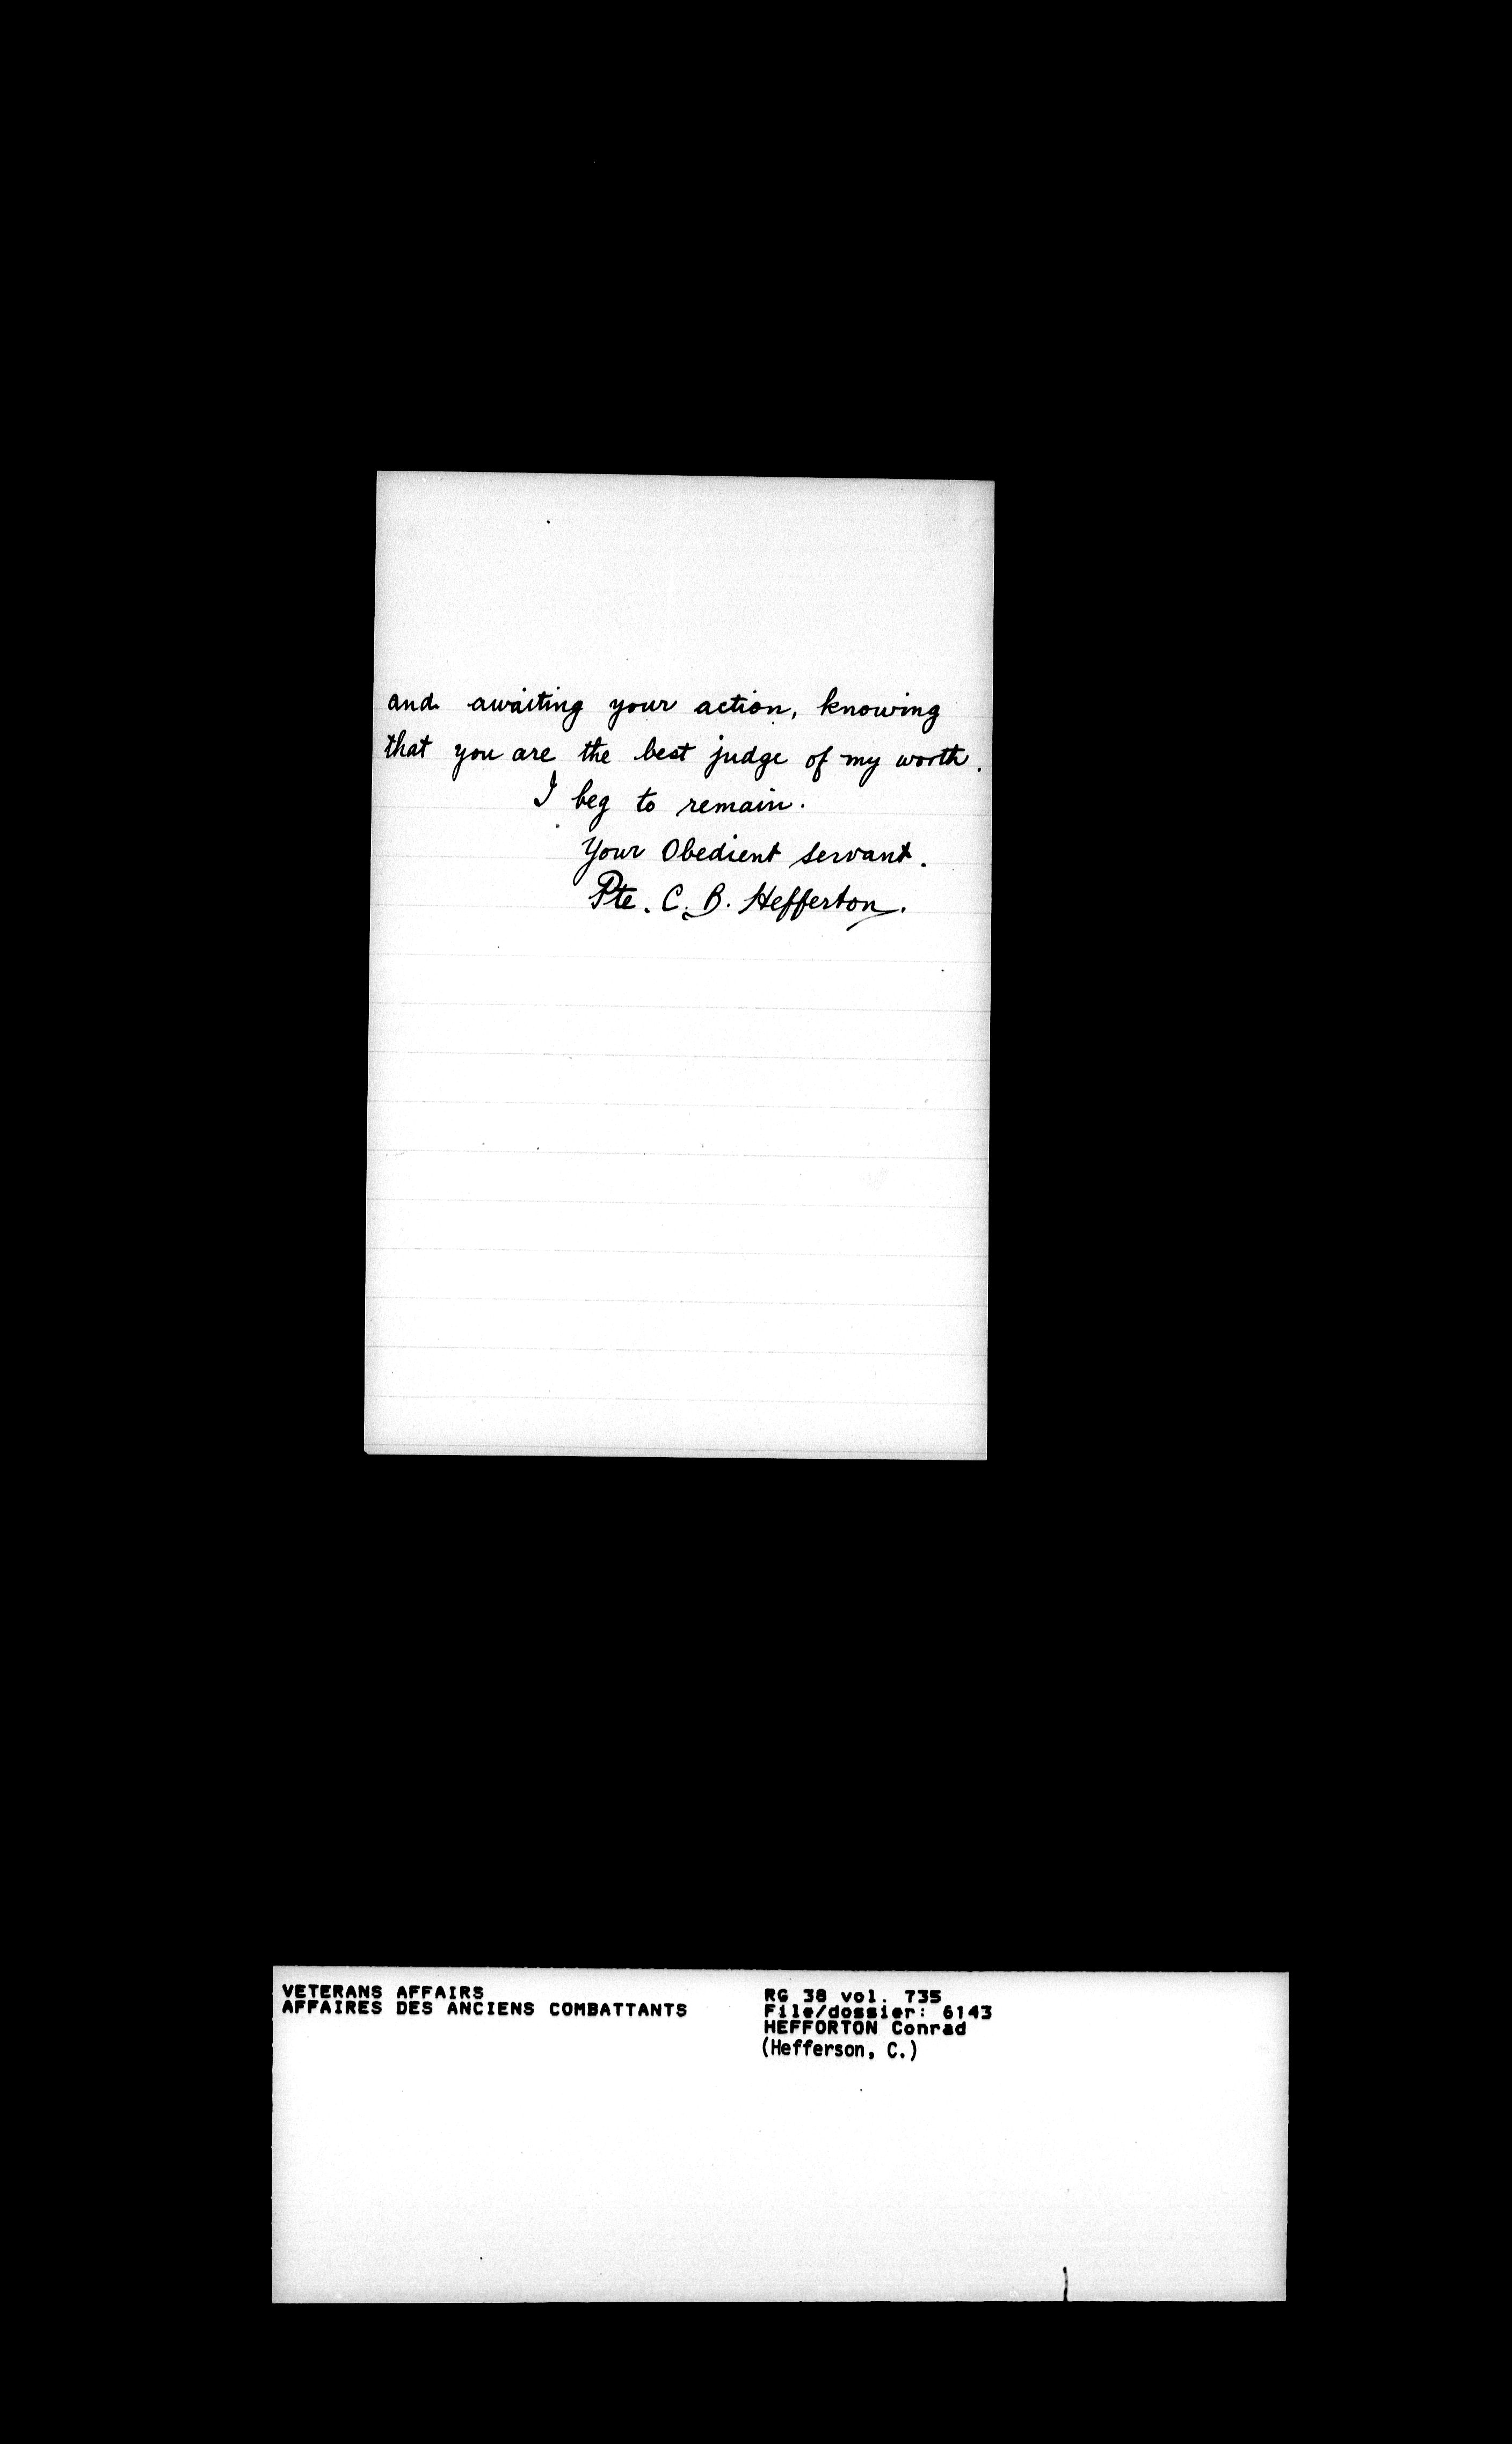 and awaiting your action, knowing
that you are the best judge of my worth.
I beg to remain.
Your Obedient servant.
Pte. C. B. Hefferton.
VETERANS AFFAIRS
AFFAIRES DES ANCIENS COMBATTANTS
RG 38 vol. 735
File/dossier: 6143
HEFFORTON Conrad
(Hefferson, C.)